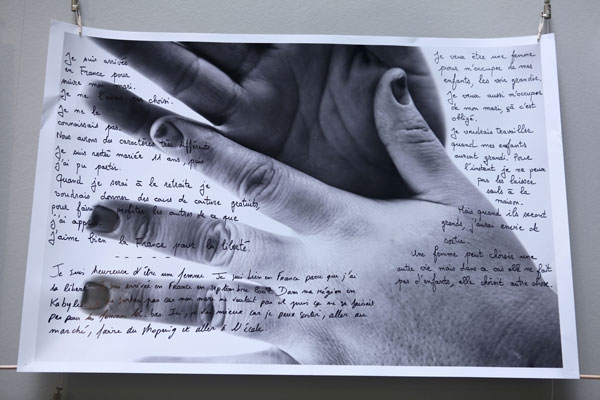 Je suis arrivée
en France pour
suivre mon mari.
Je ne l'avais pas choisi.
Je ne le
connaissais pas.
Nous avions des caractères très différents.
Je suis restée mariée 11 ans, puis
j'ai pu partir.
Quand je serai à la retraite je
voudrais donner des cours de couture gratuits,
pour faire profiter les autres de ce que
j'ai appris
J'aime bien la France pour la liberté.
Je suis heureuse d'être une femme. Je suis bien en France parce que j'ai
la liberté suis arrivée en France en septembre Dans ma région en
Kabylie sortais pas car mon mari ne voulait pas et puis ça ne se faisait
pas pour les femmes là-bas. Ici, mieux car je peux sortir, aller au
marché, faire du shopping et aller à l'école
Je veux être une femme
pour m'occuper de mes
enfants, les voir grandir.
Je veux aussi m'occuper
de mon mari, çà c'est
obligé.
Je voudrais travailler
quand mes enfants
auront grandi. Pour
l'instant je ne peux
pas les laisser
seuls à la
maison.
Mais quand ils seront
grands, j'aurai envie de
sortir.
Une femme peut choisir une
autre vie mais dans ce cas elle ne fait
pas d'enfants, elle choisit autre chose.